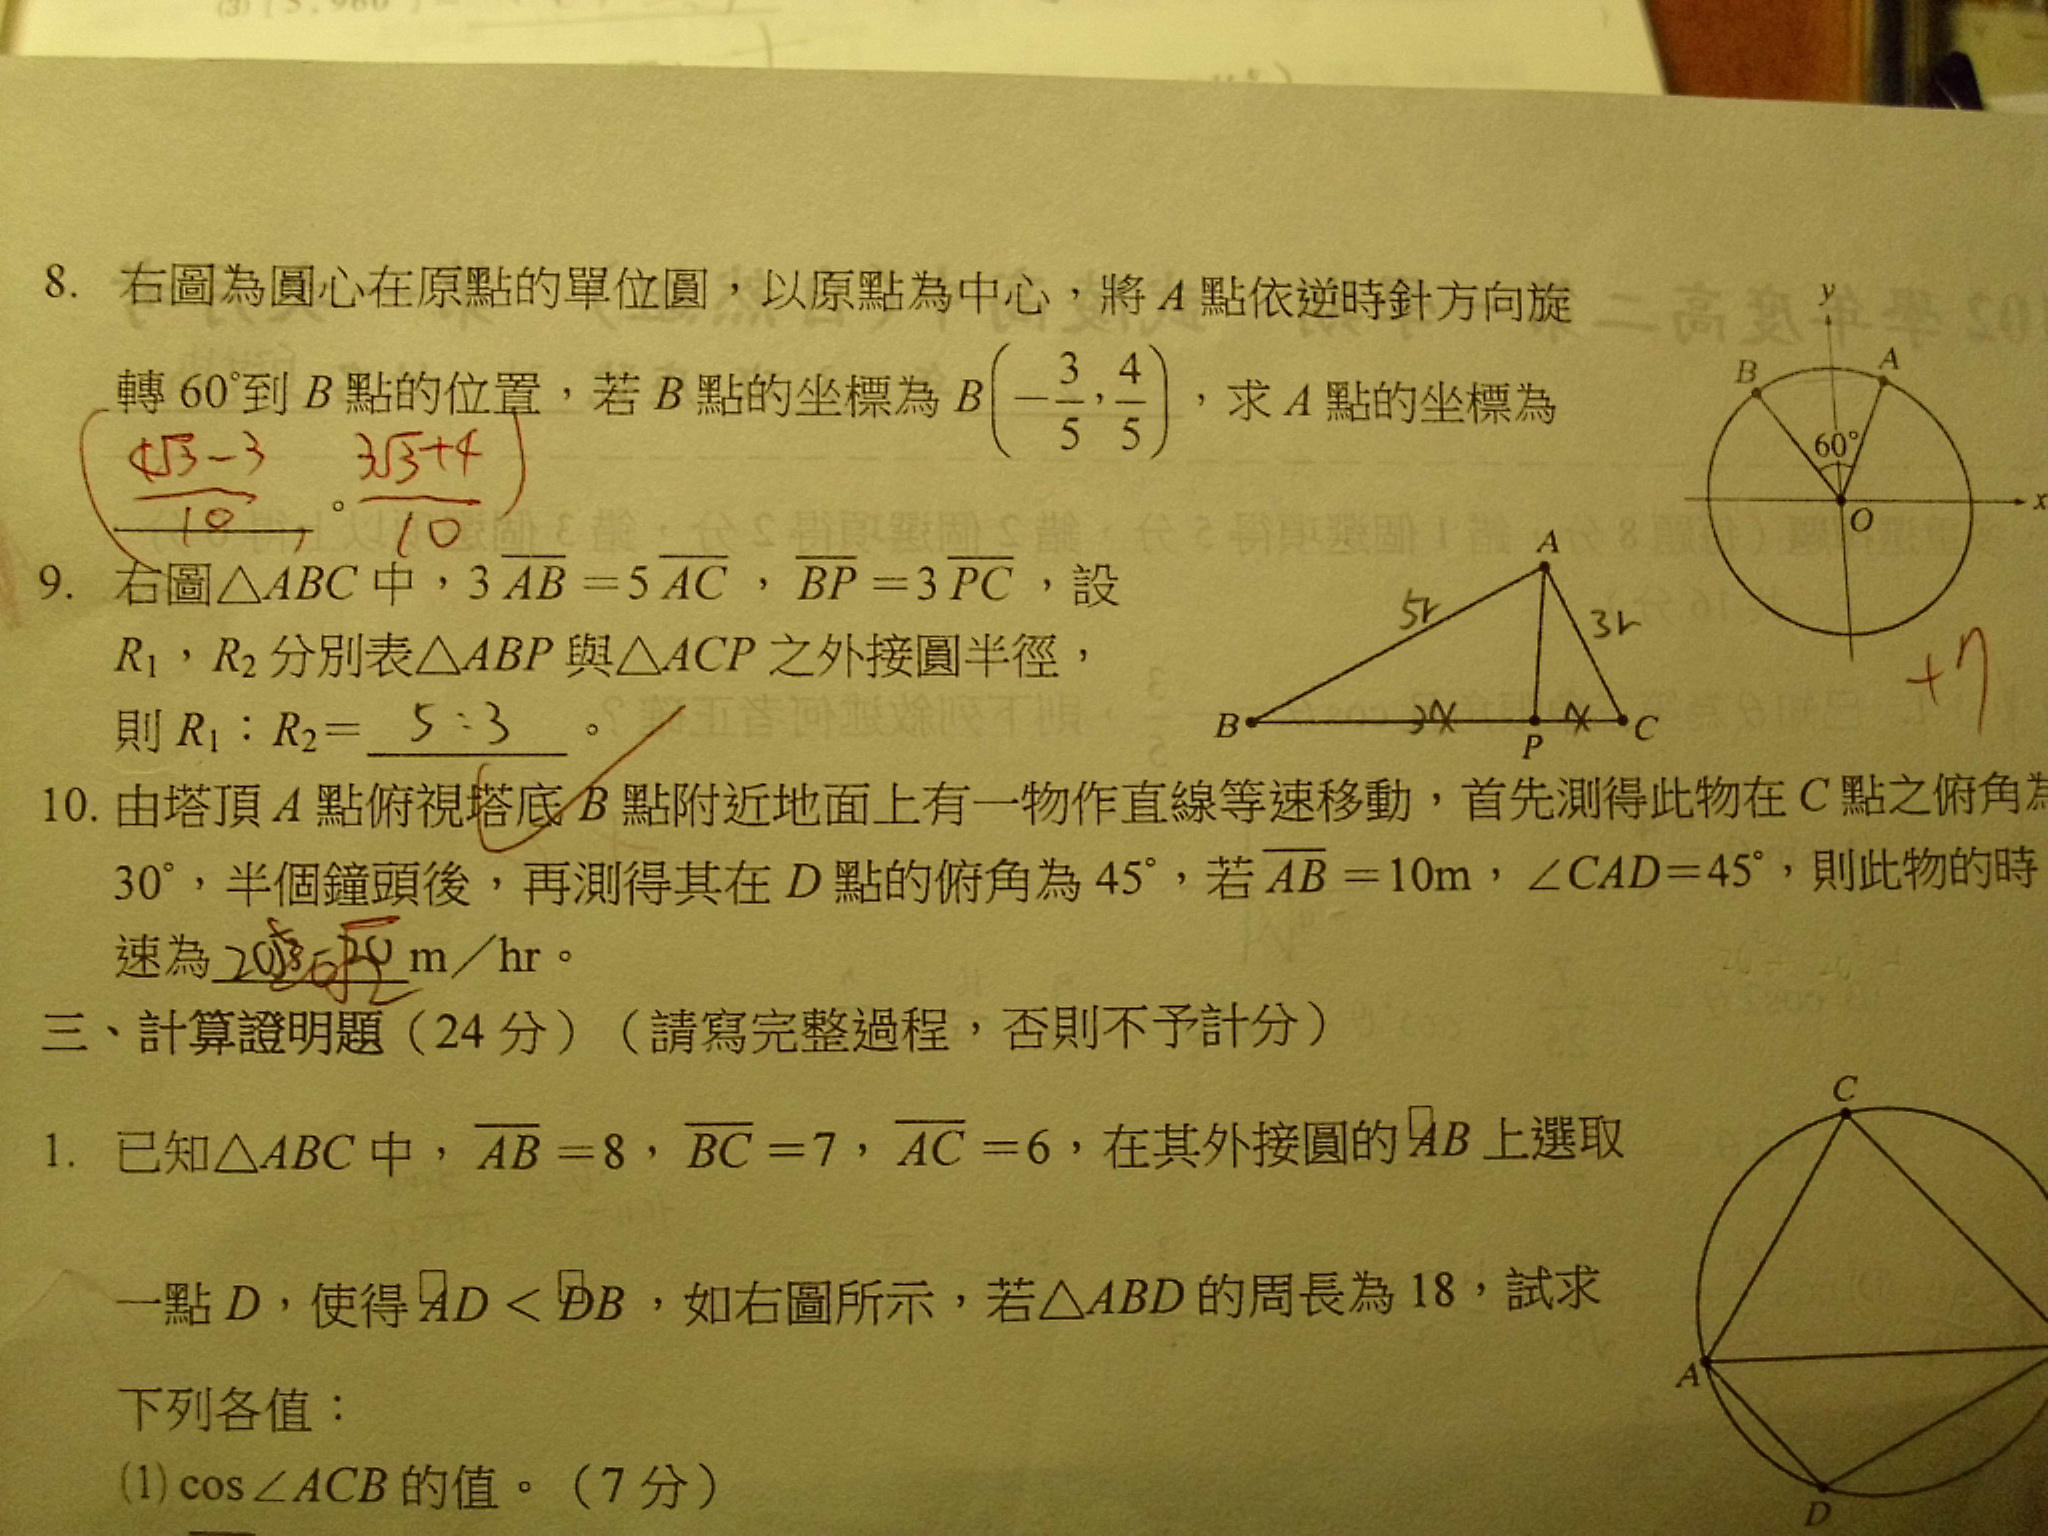 8. 右圖為圓心在原點的單位圓，以原點為中心，將 A 點依逆時針方向旋
轉 60°到 B 點的位置，若 B 點的坐標為 B(-3/5, 4/5)，求 A 點的坐標為
(4√3-3/10, 3√3+4/10)。
y
B
A
60°
O
x
9. 右圖△ABC 中，3AB=5AC，BP=3PC，設
R1，R2 分別表△ABP 與△ACP 之外接圓半徑，
則 R1：R2= 5:3 。
A
5r
3r
B
3x
P
x
C
+7
10. 由塔頂 A 點俯視塔底 B 點附近地面上有一物作直線等速移動，首先測得此物在 C 點之俯角為
30°，半個鐘頭後，再測得其在 D 點的俯角為 45°，若 AB=10m，∠CAD=45°，則此物的時
速為 m／hr。
三、計算證明題（24 分）（請寫完整過程，否則不予計分）
1. 已知△ABC 中，AB=8，BC=7，AC=6，在其外接圓的 AB 上選取
一點 D，使得 AD < DB，如右圖所示，若△ABD 的周長為 18，試求
下列各值：
(1) cos∠ACB 的值。（7 分）
C
A
D